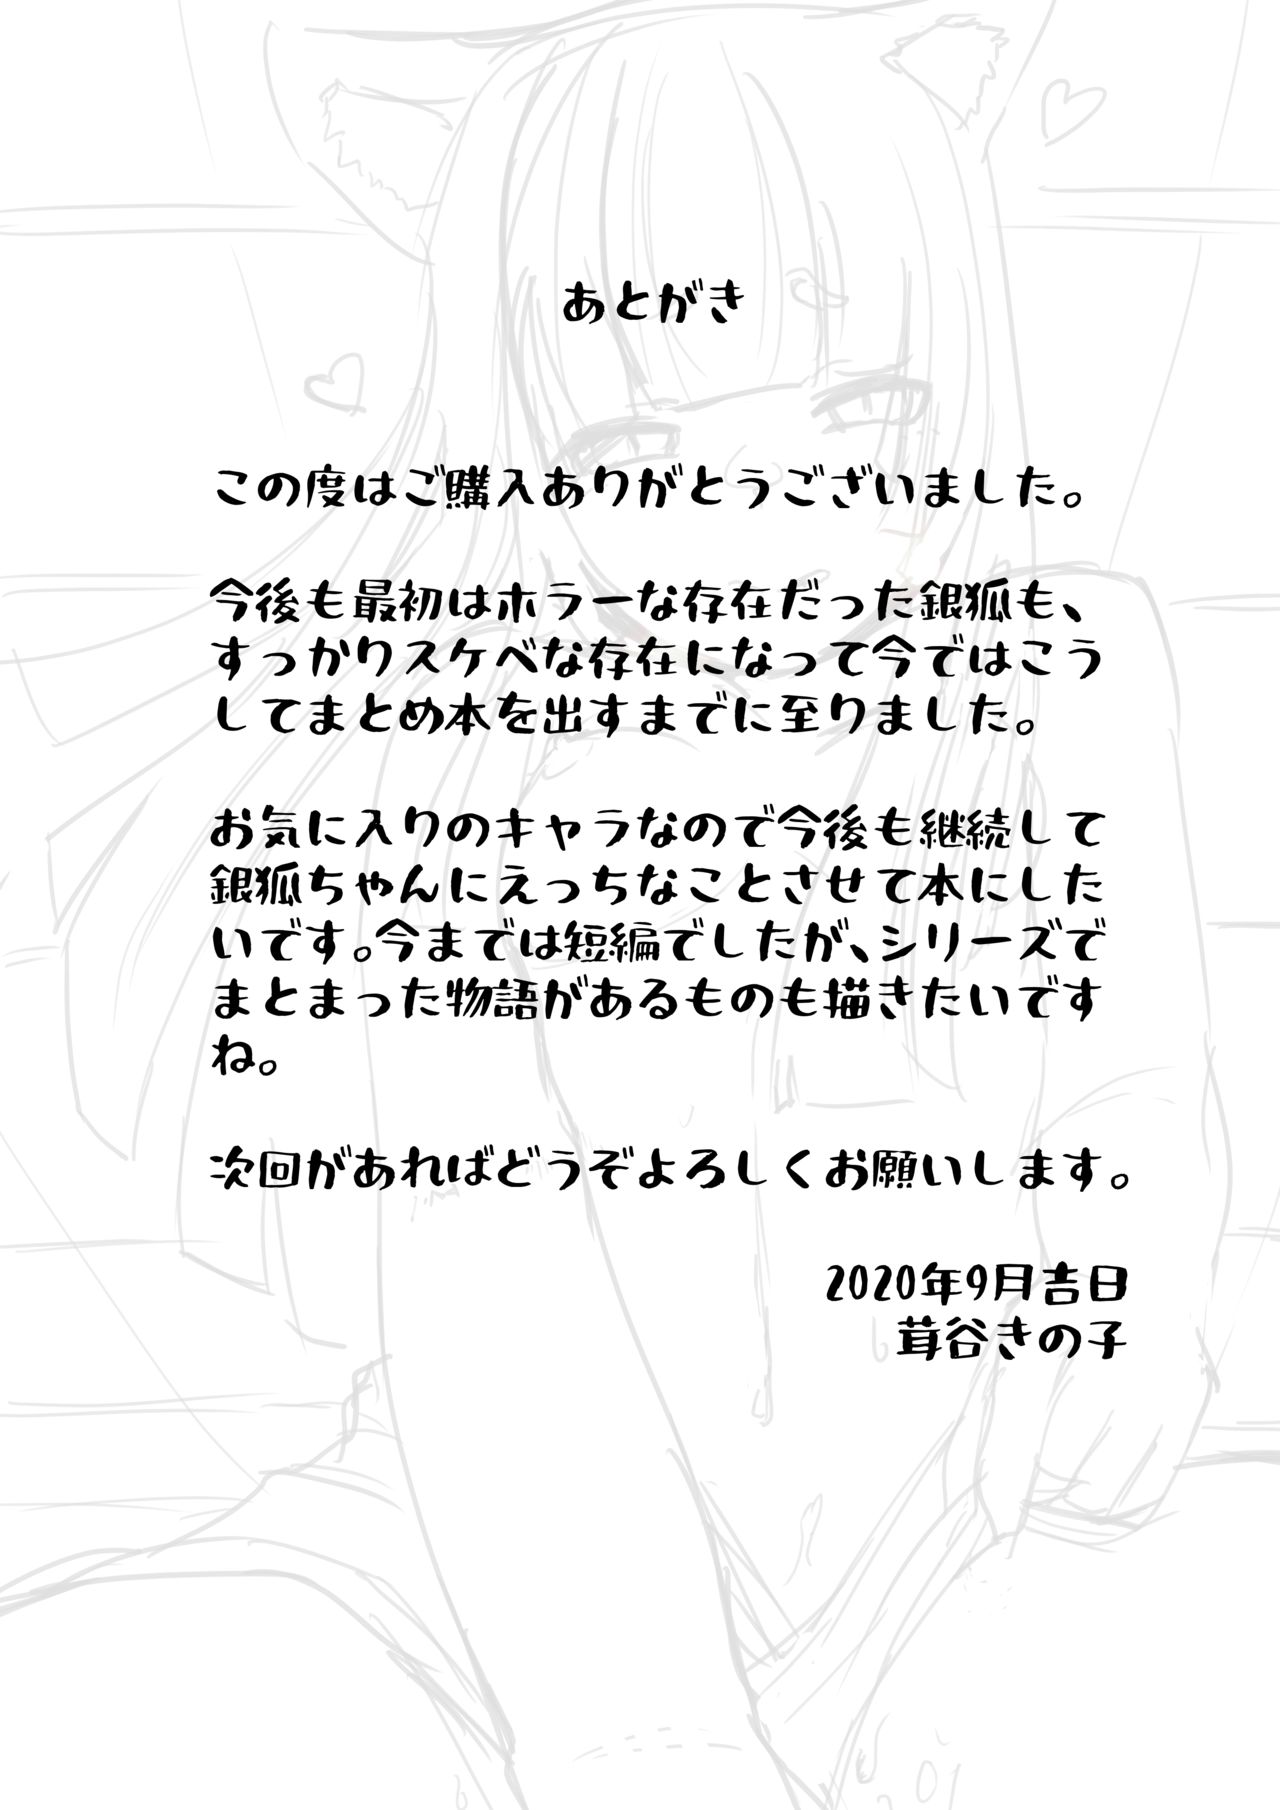 あとがき
この度はご購入ありがとうございました。
今後も最初はホラーな存在だった銀狐も、
すっかりスケベな存在になって今ではこう
してまとめ本を出すまでに至りました。
お気に入りのキャラなので今後も継続して
銀狐ちゃんにえっちなことさせて本にした
いです。今までは短編でしたが、シリーズで
まとまった物語があるものも描きたいです
ね。
次回があればどうぞよろしくお願いします。
2020年9月吉日
茸谷きの子